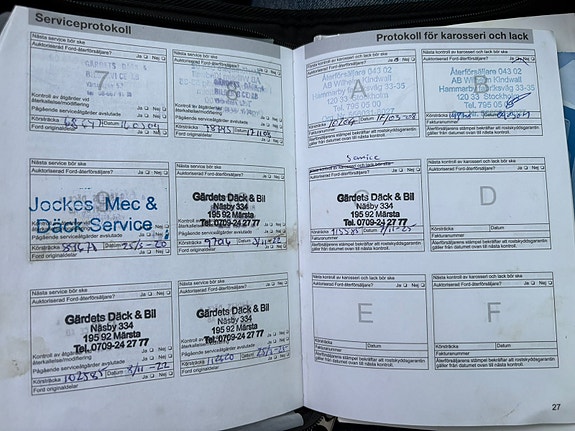 Serviceprotokoll
Nästa service bör ske
Auktoriserad Ford-återförsäljare? Ja Nej
7
Kontroll av åtgärder vid
återkallelse/modifiering
Ja Nej
Pågående serviceåtgärder avslutade
Ja Nej
Körsträcka Datum
Ford originaldelar
Nästa service bör ske
Auktoriserad Ford-återförsäljare? Ja Nej
8
Ja Nej
Körsträcka 78795 Datum
Ford originaldelar
Nästa service bör ske
Auktoriserad Ford-återförsäljare? Ja Nej
9
Jockes Mec &
Däck Service
Pågående serviceåtgärder avslutade
Ja Nej
Körsträcka Datum 25/3-20
Ford originaldelar
Nästa service bör ske
Auktoriserad Ford-återförsäljare? Ja Nej
Gärdets Däck & Bil
Näsby 334
195 92 Märsta
Tel. 0709-24 27 77
Pågående serviceåtgärder avslutade
Ja Nej
Körsträcka Datum
Ford originaldelar
Nästa service bör ske
Auktoriserad Ford-återförsäljare? Ja Nej
Gärdets Däck & Bil
Näsby 334
195 92 Märsta
Tel. 0709-24 27 77
Pågående serviceåtgärder avslutade
Ja Nej
Körsträcka 102587 Datum 8/11-22
Ford originaldelar
Nästa service bör ske
Auktoriserad Ford-återförsäljare? Ja Nej
Gärdets Däck & Bil
Näsby 334
195 92 Märsta
Tel. 0709-24 27 77
Pågående serviceåtgärder avslutade
Ja Nej
Körsträcka Datum
Ford originaldelar
Protokoll för karosseri och lack
Nästa kontroll av karosseri och lack bör ske
Auktoriserad Ford-återförsäljare? Ja Nej
A
Återförsäljare 043 02
AB Wilhelm Kindwall
Hammarby Fabriksväg 33-35
120 33 Stockholm
Tel. 795 05 00
Körsträcka Datum
Fakturanummer
Återförsäljarens stämpel bekräftar att rostskyddsgarantin
gäller från datumet ovan till nästa kontroll.
Nästa kontroll av karosseri och lack bör ske
Auktoriserad Ford-återförsäljare? Ja Nej
B
Återförsäljare 043 02
AB Wilhelm Kindwall
Hammarby Fabriksväg 33-35
120 33 Stockholm
Tel. 795 05
Körsträcka Datum
Fakturanummer
Återförsäljarens stämpel bekräftar att rostskyddsgarantin
gäller från datumet ovan till nästa kontroll.
Service
Auktoriserad Ford-återförsäljare? Ja Nej
Gärdets Däck & Bil
Näsby 334
195 92 Märsta
Tel. 0709-24 27 77
Körsträcka Datum
Fakturanummer
Återförsäljarens stämpel bekräftar att rostskyddsgarantin
gäller från datumet ovan till nästa kontroll.
Nästa kontroll av karosseri och lack bör ske
Auktoriserad Ford-återförsäljare? Ja Nej
D
Körsträcka Datum
Fakturanummer
Återförsäljarens stämpel bekräftar att rostskyddsgarantin
gäller från datumet ovan till nästa kontroll.
Nästa kontroll av karosseri och lack bör ske
Auktoriserad Ford-återförsäljare? Ja Nej
E
Körsträcka Datum
Fakturanummer
Återförsäljarens stämpel bekräftar att rostskyddsgarantin
gäller från datumet ovan till nästa kontroll.
Nästa kontroll av karosseri och lack bör ske
Auktoriserad Ford-återförsäljare? Ja Nej
F
Körsträcka Datum
Fakturanummer
Återförsäljarens stämpel bekräftar att rostskyddsgarantin
gäller från datumet ovan till nästa kontroll.
27